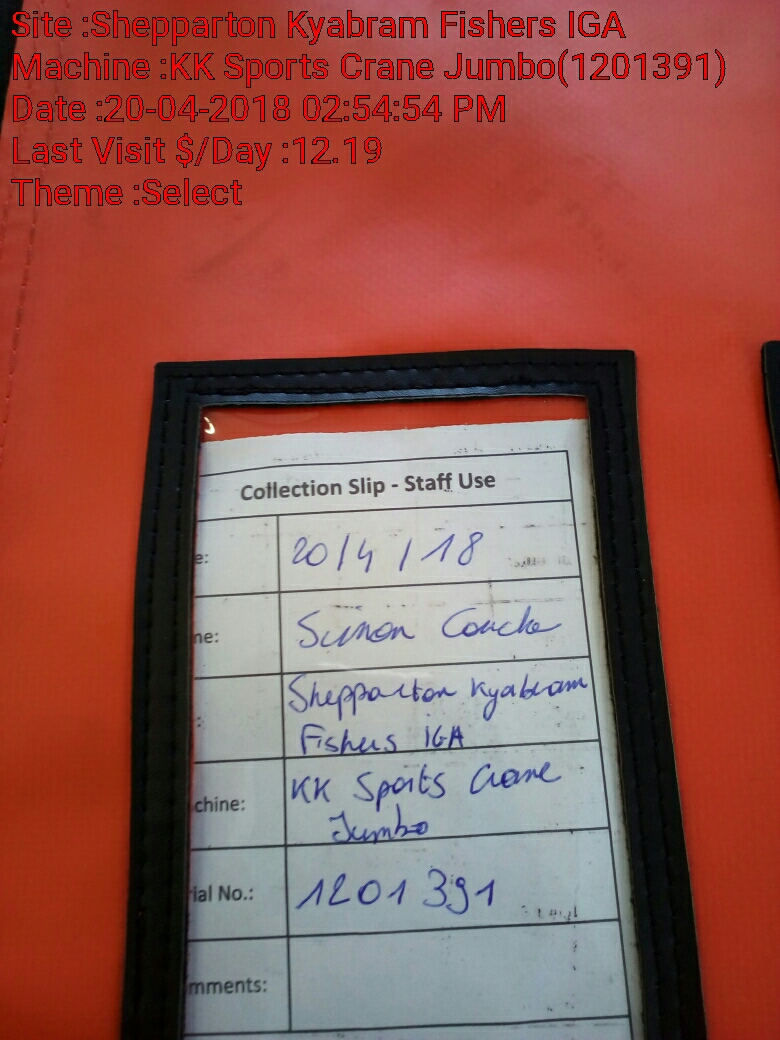 Site :Shepparton Kyabram Fishers IGA
Machine :KK Sports Crane Jumbo(1201391)
Date :20-04-2018 02:54:54 PM
Last Visit $/Day :12.19
Theme :Select
Collection Slip - Staff Use
e: 20/4/18
me: Simon
: Shepparton Kyabram
Fishers IGA
chine: KK Sports Crane
Jumbo
ial No.: 1201391
mments: